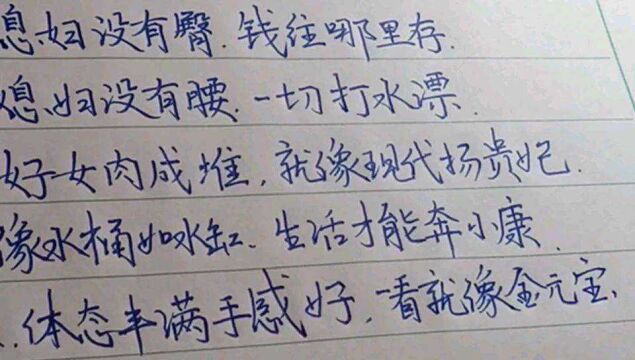 息妇没有臀.钱往哪里存.
媳妇没有腰.一切打水漂.
好女肉成堆,就像现代扬贵妃.
像水桶如水缸、生活才能奔小康.
..体态丰满手感好,一看就像金元宝、